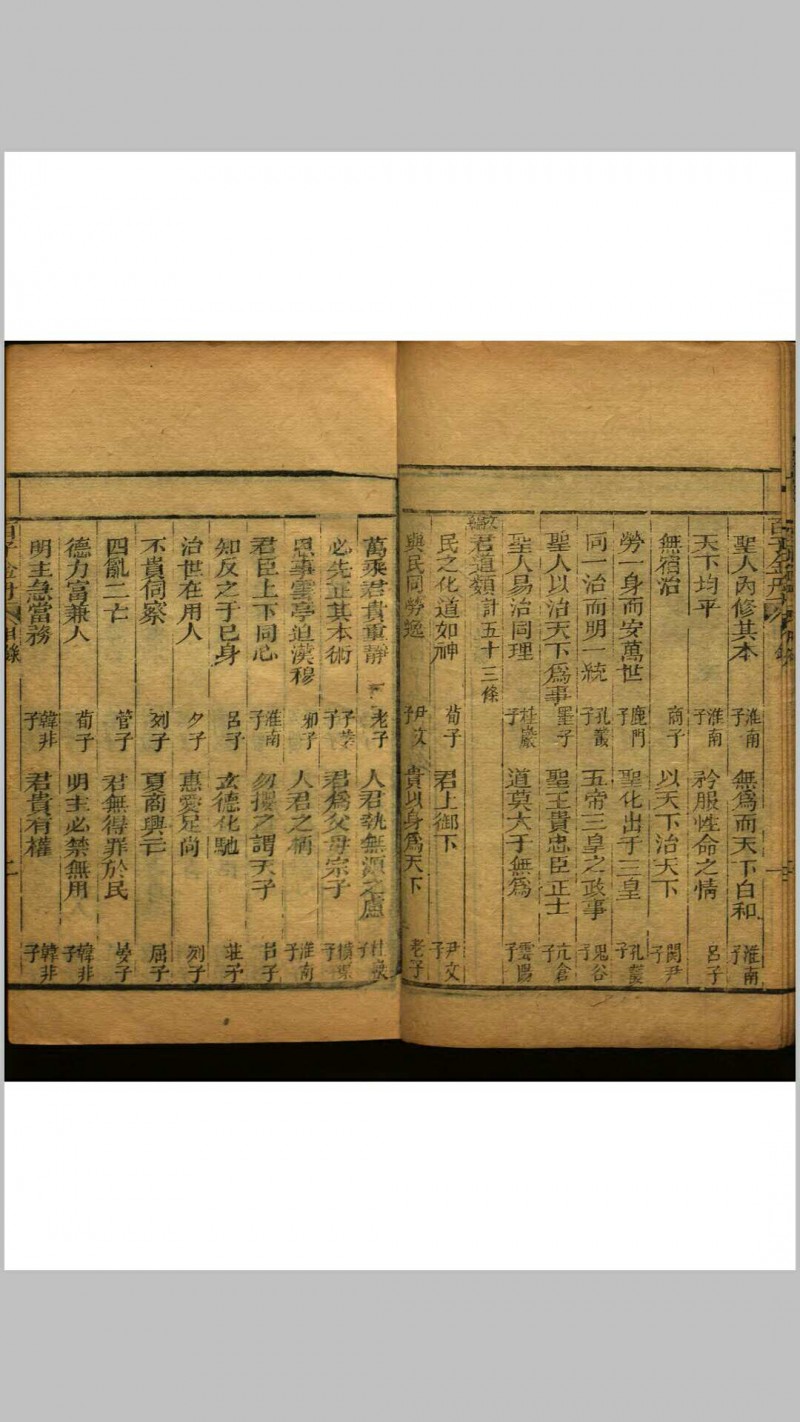 百子金丹 目錄
聖人內修其本 淮南子 無爲而天下自和 淮南子
天下均平 淮南子 衿服性命之情 呂子
無宿治 商子 以天下治天下 関尹子
勞一身而安萬世 鹿門子 聖化出于三皇 孔叢子
同一治而明一統 孔叢子 五帝三皇之政事 鬼谷子
聖人以治天下爲事 墨子 聖王貴忠臣正士 亢倉子
聖人易治同理 桂巖子 道莫大于無爲 雲陽子
君道類計五十三條
民之化道如神 荀子 君上御下 尹文子
與民同勞逸 尹文子 貴以身爲天下 老子
萬乘君貴重靜 老子 人君執無源之慮 桂巖子
必先正其本術 君爲父母宗子 橫渠子
恩事雲亭迫漠穆 人君之柄 淮南子
君臣上下同心 淮南子 勿攖之謂天子 呂子
知反之于已身 呂子 玄德化馳 莊子
治世在用人 夕子 惠愛足尚 列子
不貴伺察 列子 夏商興亡 屈子
四亂二亡 管子 君無得罪於民 晏子
德力富兼人 荀子 明主必禁無用 韓非子
明主急當務 韓非子 君貴有權 韓非子
百子金丹 目錄 二